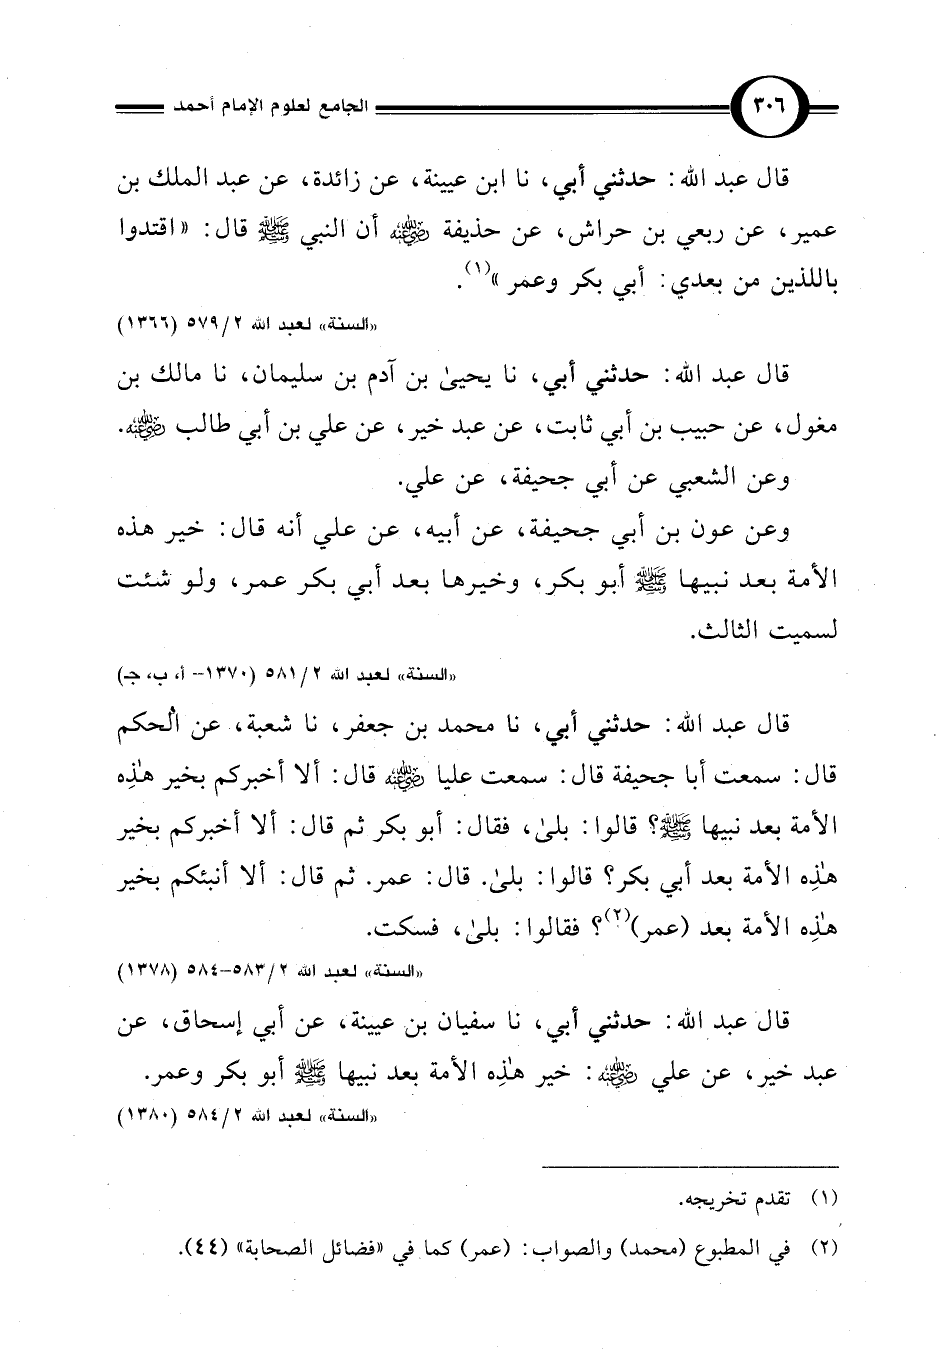 ٣٠٦ الجامع لعلوم الإمام أحمد
قال عبد الله: حدثني أبي، نا ابن عيينة، عن زائدة، عن عبد الملك بن
عمير، عن ربعي بن حراش، عن حذيفة رضي الله عنه أن النبي ﷺ قال: «اقتدوا
باللذين من بعدي: أبي بكر وعمر»(١).
«السنة» لعبد الله ٥٧٩/٢ (١٣٦٦)
قال عبد الله: حدثني أبي، نا يحيىٰ بن آدم بن سليمان، نا مالك بن
مغول، عن حبيب بن أبي ثابت، عن عبد خير، عن علي بن أبي طالب رضي الله عنه.
وعن الشعبي عن أبي جحيفة، عن علي.
وعن عون بن أبي جحيفة، عن أبيه، عن علي أنه قال: خير هذه
الأمة بعد نبيها ﷺ أبو بكر، وخيرها بعد أبي بكر عمر، ولو شئت
لسميت الثالث.
«السنة» لعبد الله ٥٨١/٢ (١٣٧٠-- أ، ب، جـ)
قال عبد الله: حدثني أبي، نا محمد بن جعفر، نا شعبة، عن الحكم
قال: سمعت أبا جحيفة قال: سمعت عليا رضي الله عنه قال: ألا أخبركم بخير هذِه
الأمة بعد نبيها ﷺ؟ قالوا: بلىٰ، فقال: أبو بكر ثم قال: ألا أخبركم بخير
هذِه الأمة بعد أبي بكر؟ قالوا: بلىٰ. قال: عمر. ثم قال: ألا أنبئكم بخير
هذِه الأمة بعد (عمر)(٢)؟ فقالوا: بلىٰ، فسكت.
«السنة» لعبد الله ٥٨٣/٢-٥٨٤ (١٣٧٨)
قال عبد الله: حدثني أبي، نا سفيان بن عيينة، عن أبي إسحاق، عن
عبد خير، عن علي رضي الله عنه: خير هذِه الأمة بعد نبيها ﷺ أبو بكر وعمر.
«السنة» لعبد الله ٥٨٤/٢ (١٣٨٠)
(١) تقدم تخريجه.
(٢) في المطبوع (محمد) والصواب: (عمر) كما في «فضائل الصحابة» (٤٤).